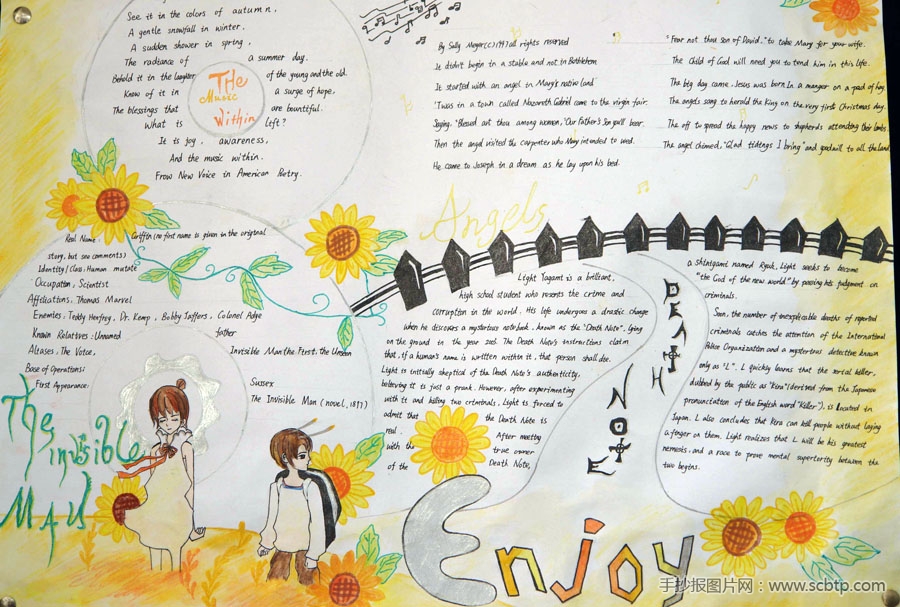 See it in the colors of autumn,
A gentle snowfall in winter,
A sudden shower in spring,
The radiance of a summer day.
Behold it in the laughter of the young and the old.
Know of it in a surge of hope,
The blessings that are bountiful.
What is left?
It is joy, awareness,
And the music within.
From New Voice in American Poetry.
THe
Music
Within
By Sally Meyer(c)1997 all rights reserved
It didn't begin in a stable and not in Bethlehem
It started with an angel in Mary's routine land
'Twas in a town called Nazareth Gabriel came to the virgin fair.
Saying, "Blessed art thou among women, "Our Father's Son you'll bear.
Then the angel visited the carpenter who Mary intended to wed.
He came to Joseph in a dream as he lay upon his bed.
"Fear not thou son of David," to take Mary for your wife.
The Child of God will need you to tend him in this life.
The big day came, Jesus was born In a manger on a pad of hay.
The angels sang to herald the King on the very first Christmas day.
The off to spread the happy news to shepherds attending their lambs.
The angel chimed, "Glad tidings I bring" and goodwill to all the land
Angels
Real Name: Griffin (no first name is given in the original
story, but see comments)
Identity/Class: Human mutate
Occupation, Scientist
Affiliations, Thomas Marvel
Enemies, Teddy Henfrey, Dr. Kemp, Bobby Jaffers, Colonel Adye
Known Relatives: Unnamed father
Aliases, The Voice, Invisible Man the First, the Unseen
Base of Operations: Sussex
First Appearance: The Invisible Man (novel, 1897)
The
invisible
MAN
Light Yagami is a brilliant,
high school student who resents the crime and
corruption in the world. His life undergoes a drastic change
when he discovers a mysterious notebook, known as the "Death Note", lying
on the ground in the year The Death Note's instructions claim
that, if a human's name is written within it, that person shall die.
Light is initially skeptical of the Death Note's authenticity,
believing it is just a prank. However, after experimenting
with it and killing two criminals, Light is forced to
admit that the Death Note is
real. After meeting
with the true owner
of the Death Note,
DEATH
NOTE
a shinigami named Ryuk, Light seeks to become
"the God of the new world" by passing his judgment on
criminals.
Soon, the number of inexplicable deaths of reported
criminals catches the attention of the International
Police Organization and a mysterious detective known
only as "L". L quickly learns that the serial killer,
dubbed by the public as "Kira"(derived from the Japanese
pronunciation of the English word "Killer"), is located in
Japan. L also concludes that Kira can kill people without laying
a finger on them. Light realizes that L will be his greatest
nemesis, and a race to prove mental superiority between the
two begins.
Enjoy
手抄报图片网：www.scbtp.com